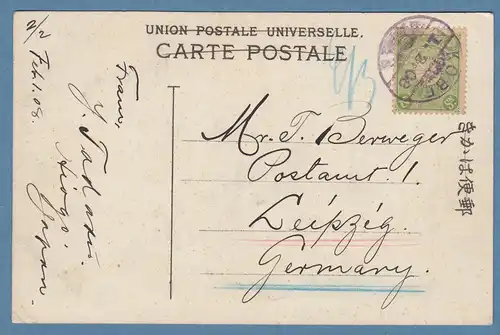 UNION POSTALE UNIVERSELLE.
CARTE POSTALE
2/2
Feb. 1. 08.
From,
Y. Tadasu.
Hiogo,
Japan.
Mr. T. Berweger
Postamt. 1.
Leipzig.
Germany.
KOBE
08
きかは便郵